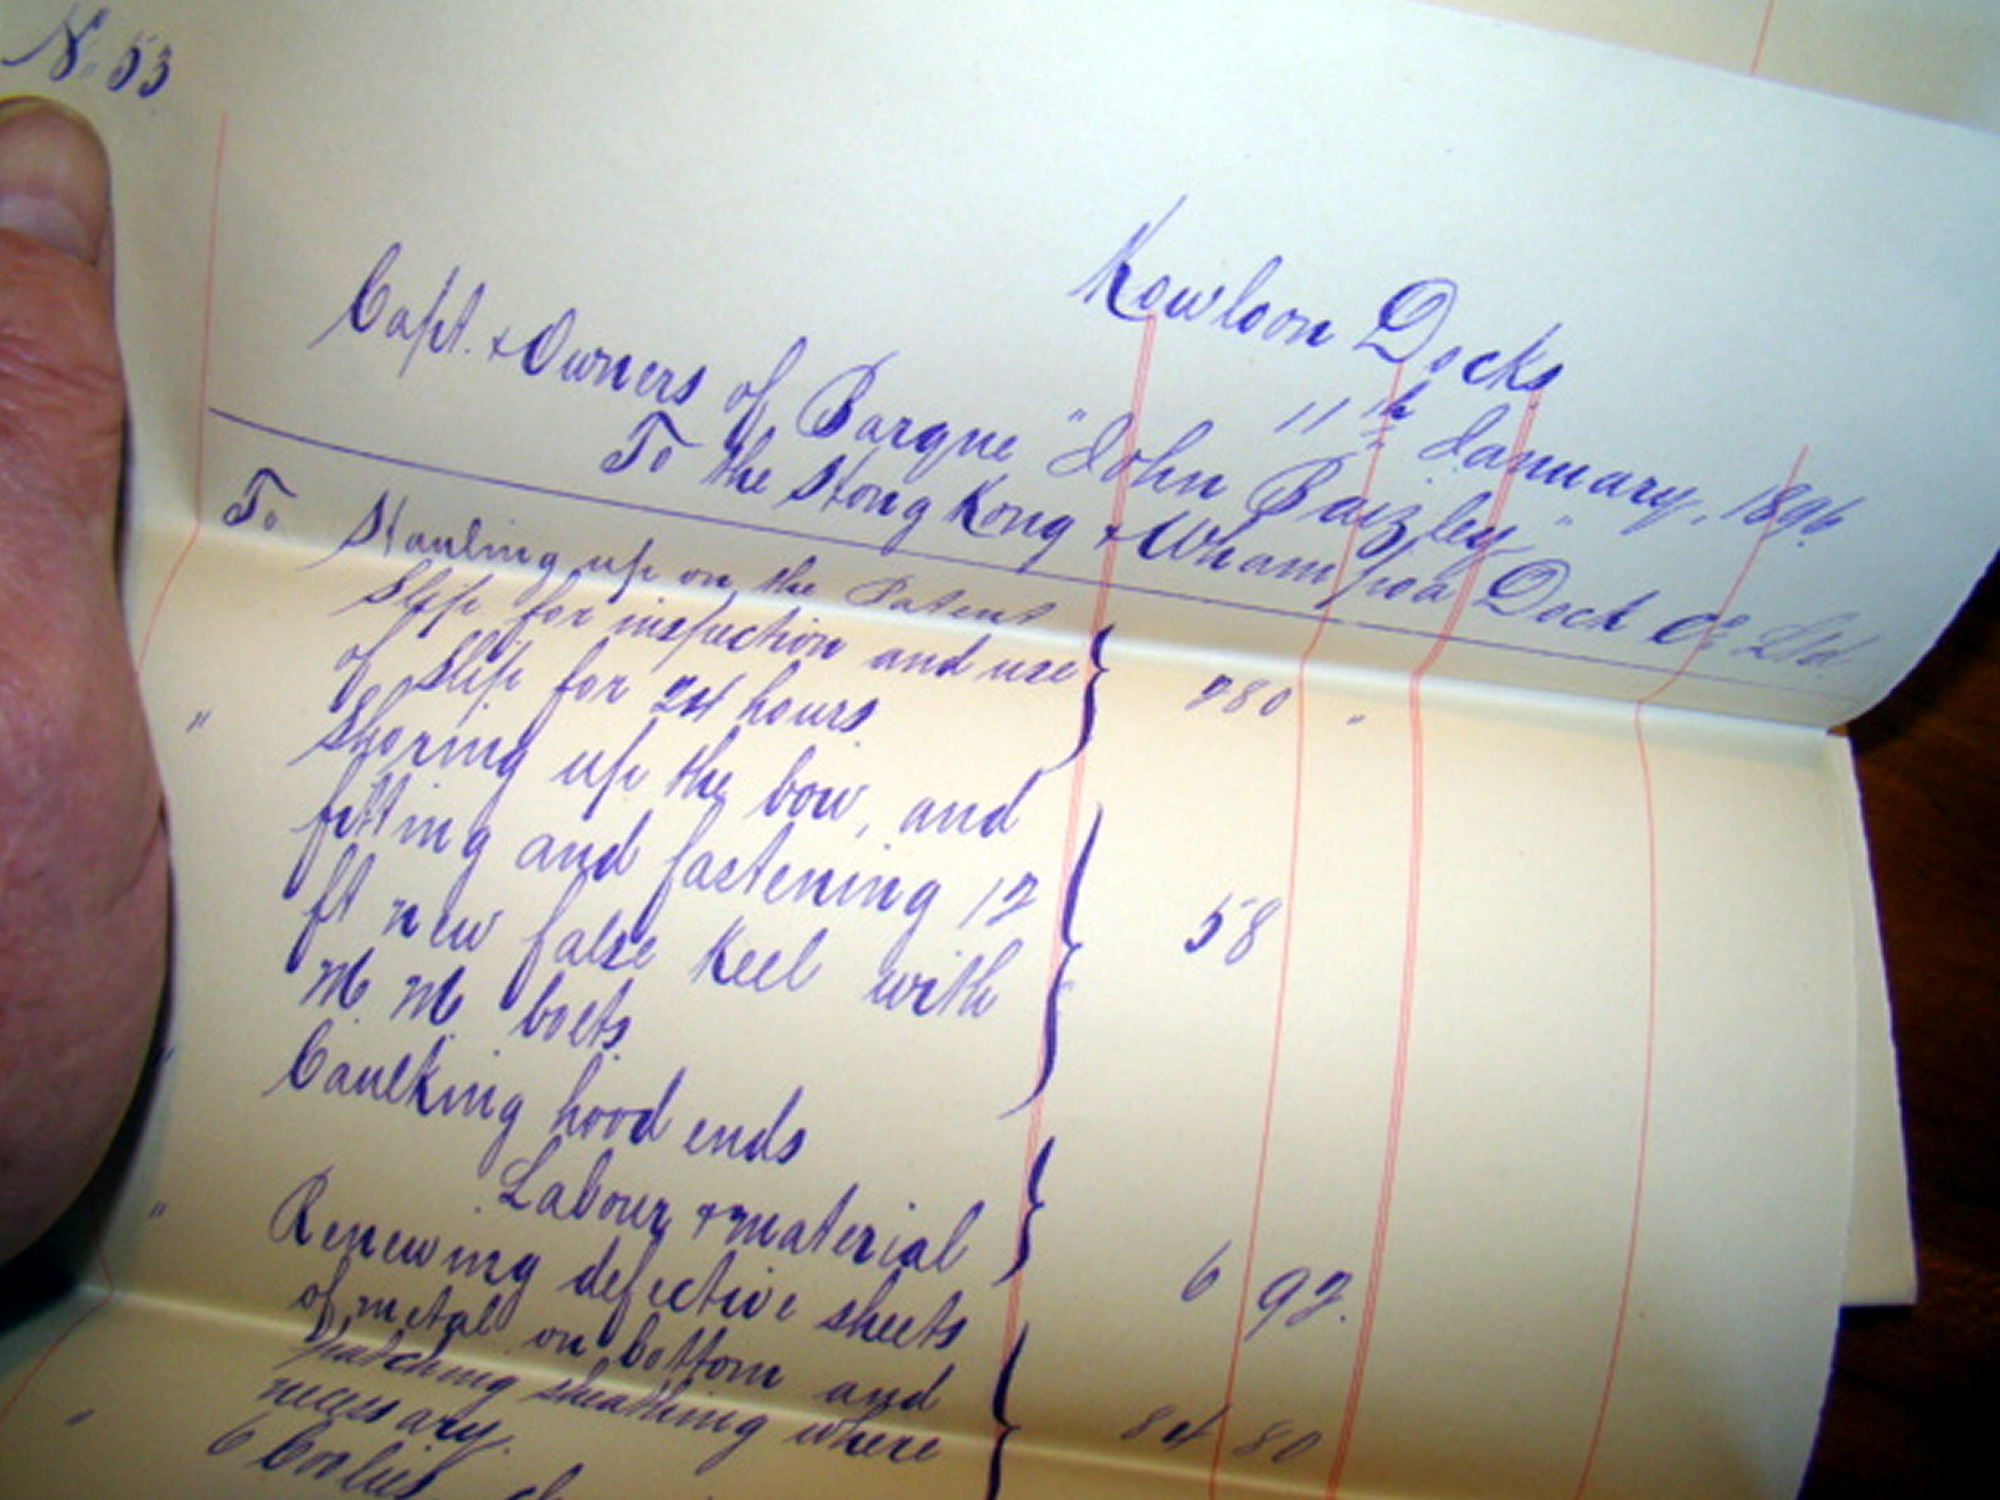 No. 53
Kowloon Docks
11th January, 1896.
Capt. & Owners of Barque "John Baizley"
To the Hong Kong & Whampoa Dock Co. Ltd.
To Hauling up on the Patent
Slip for inspection and use
of Slip for 24 hours. 280 "
" Shoring up the bow, and
fitting and fastening 12
ft new false keel with 58
M. M. bolts.
" Caulking hood ends
Labour & material 6 92.
" Renewing defective sheets
of metal on bottom and
patching sheathing where 84 80
necessary.
" 6 Coolies